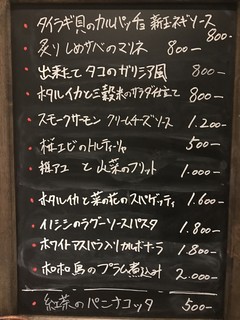 ・タイラギ貝のカルパッチョ 新玉ネギソース 800-
・炙りしめサバのマリネ 800-
・出来たて タコのガリシア風 800-
・ホタルイカと三穀米のサラダ仕立て 800-
・スモークサーモン クリームチーズソース 1.200-
・桜エビのトルティーリャ 500-
・稚アユ と 山菜のフリット 1.000-
・ホタルイカと菜の花のスパゲッティ 1.600-
・イノシシのラグーソースパスタ 1.800-
・ホワイトアスパラ入りカルボナーラ 1.800-
・ホロホロ鳥のプラム煮込み 2.000-
・紅茶のパンナコッタ 500-